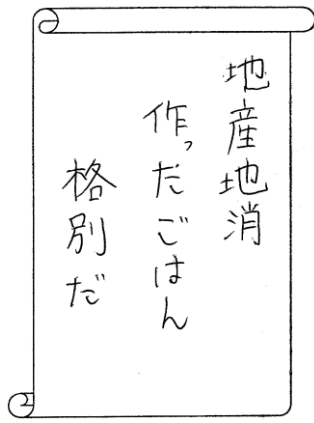 地産地消
作っだごはん
格別だ